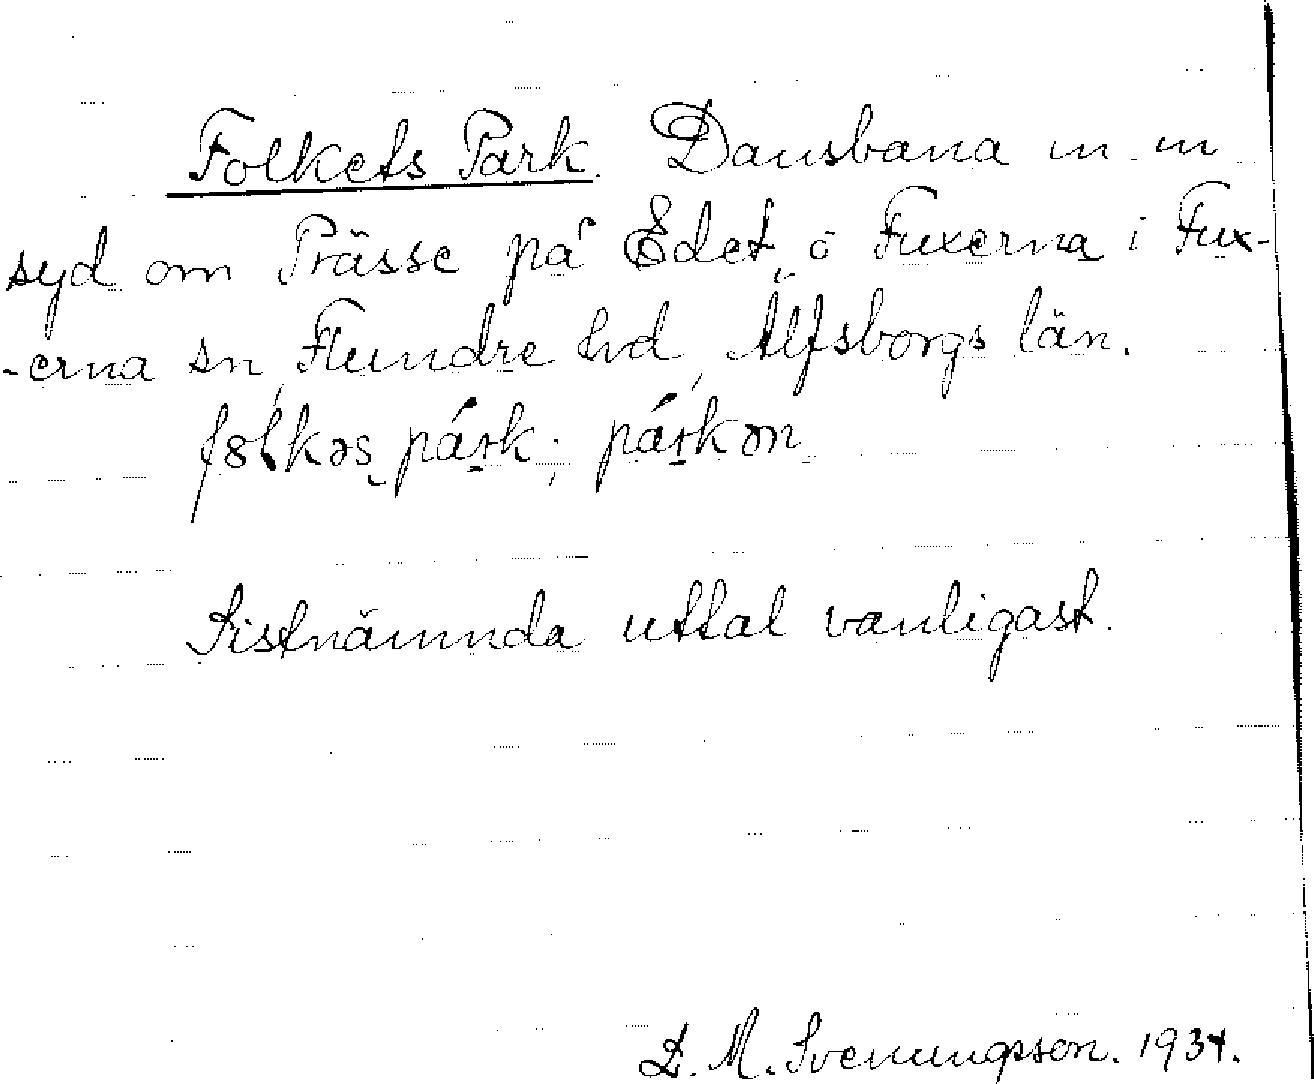 Folkets Park. Dansbana m m
syd om Prässe på Edet, ö Fuxerna i Fux-
-erna sn, Flundre hd, Älfsborgs län.
fólkəs párk; párkən
Sistnämnda uttal vanligast.
D. M. Svenungsson. 1934.